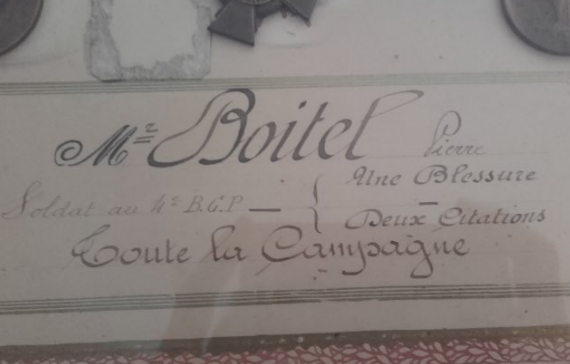 Mr Boitel Pierre
Une Blessure
Soldat au 4e B.C.P — {
Deux Citations
Toute la Campagne